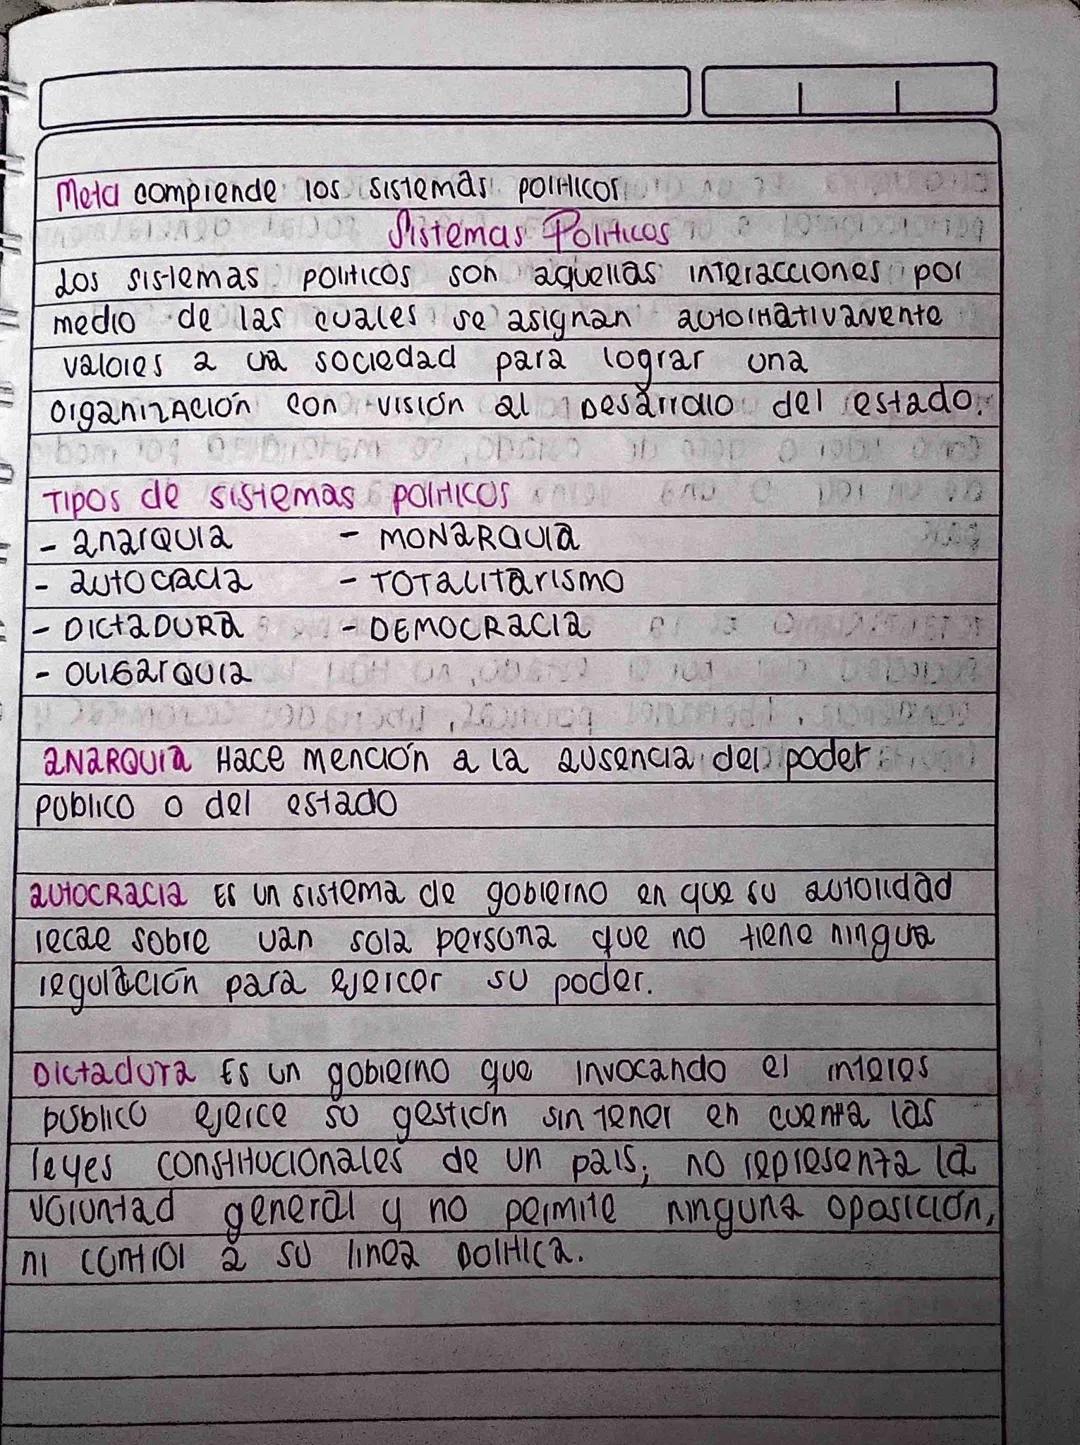 Meta compiende los sistemas politicos
Sistemas Politicos
Los sistemas politicos son aquellas interacciones por
medio de las cuales se asignan autoritativavente
valores a una sociedad para lograr una
organización con visión al Desarrollo del estado.
Tipos de sistemas politicos
- anarquia - MONARQUIA
- autocracia - TOTALITARISMO
- DICTADURA - DEMOCRACIA
- OLIGARQUIA
ANARQUIA Hace mención a la ausencia del poder
publico o del estado
autocracia Es un sistema de gobierno en que su autoridad
recae sobre uan sola persona que no tiene ningua
regulación para ejercer su poder.
Dictadura Es un gobierno que invocando el interes
publico ejerce su gestión sin tener en cuenta las
leyes constitucionales de un pais; no representa la
voluntad general y no permite ninguna oposición,
ni control a su linea politica.